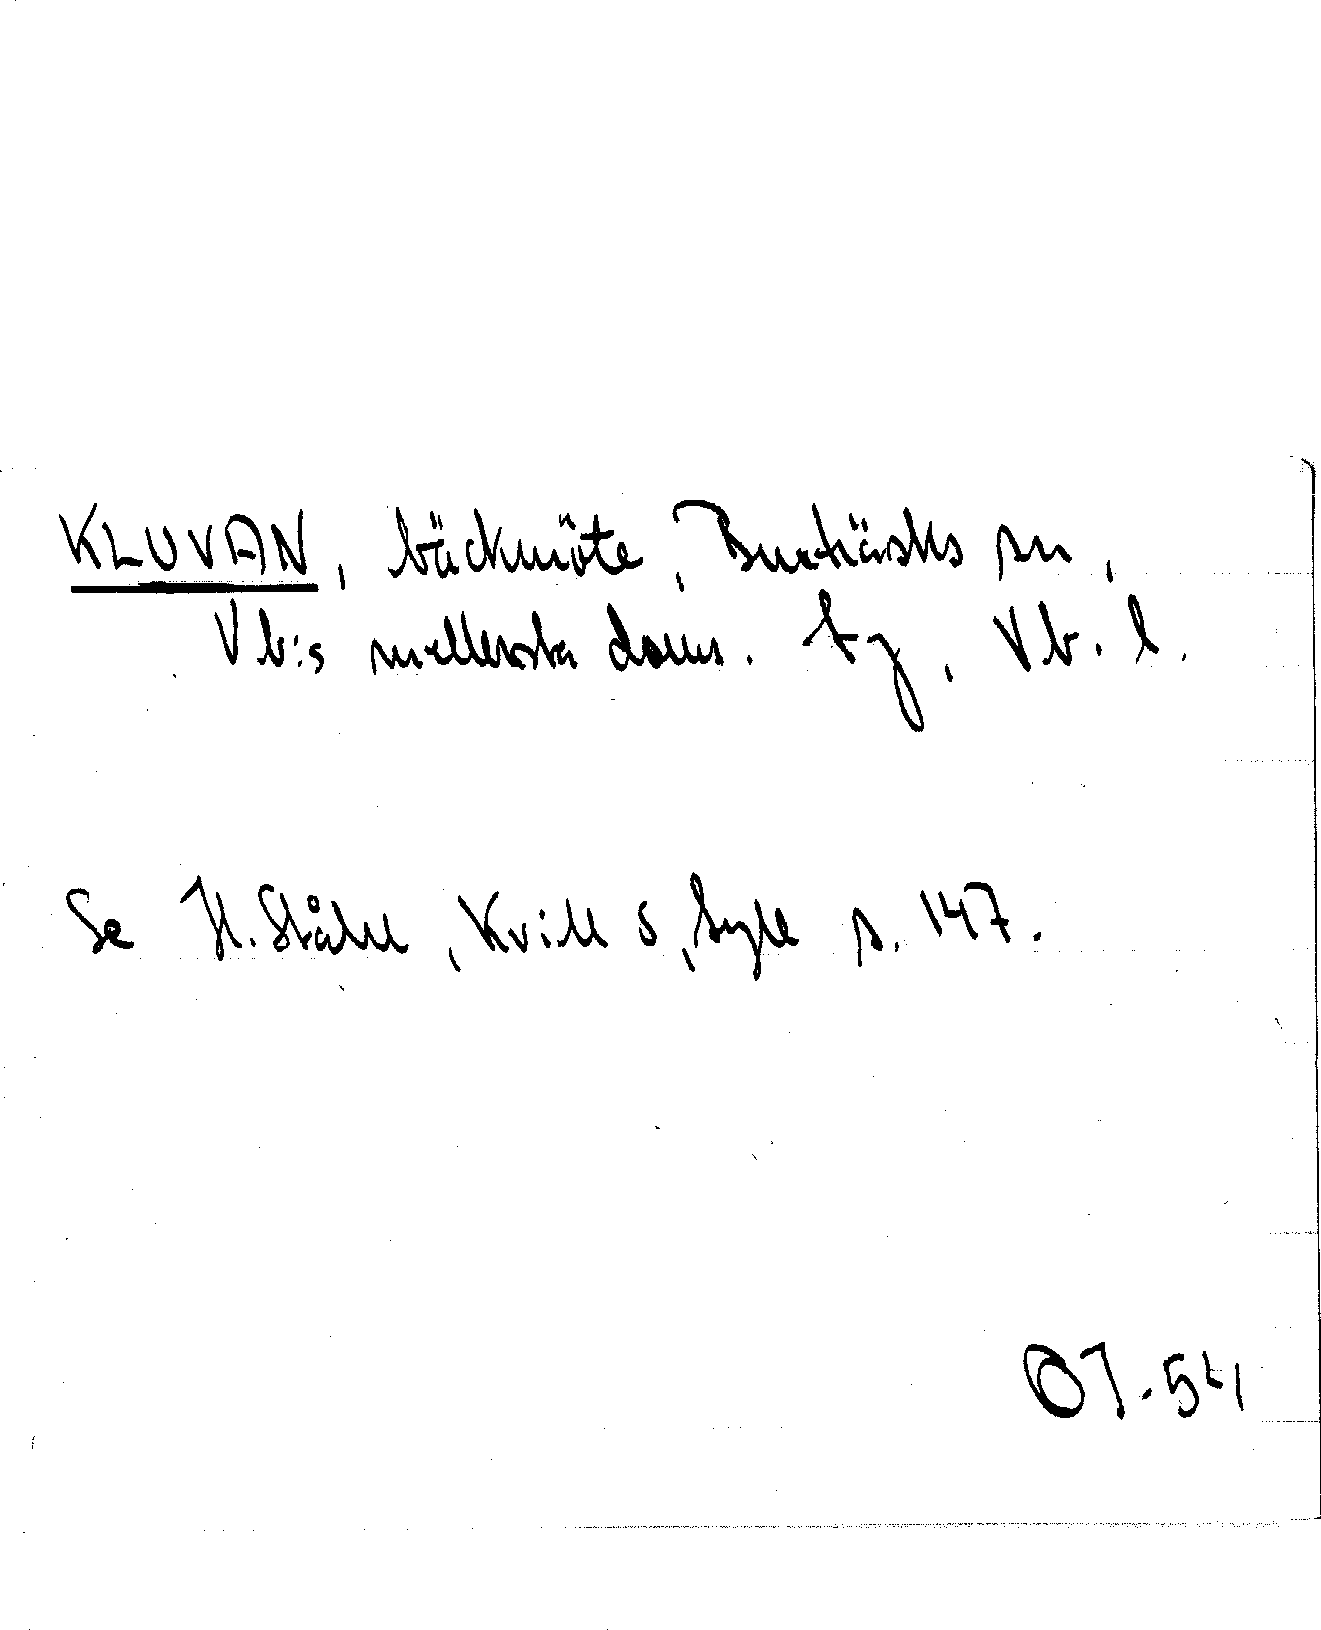 KLUVAN, bäckmöte, Burträsks sn,
Vb:s mellersta doms. tg, Vb. l.
Se H. Ståhl, Kvill o, Syll s. 147.
07-54